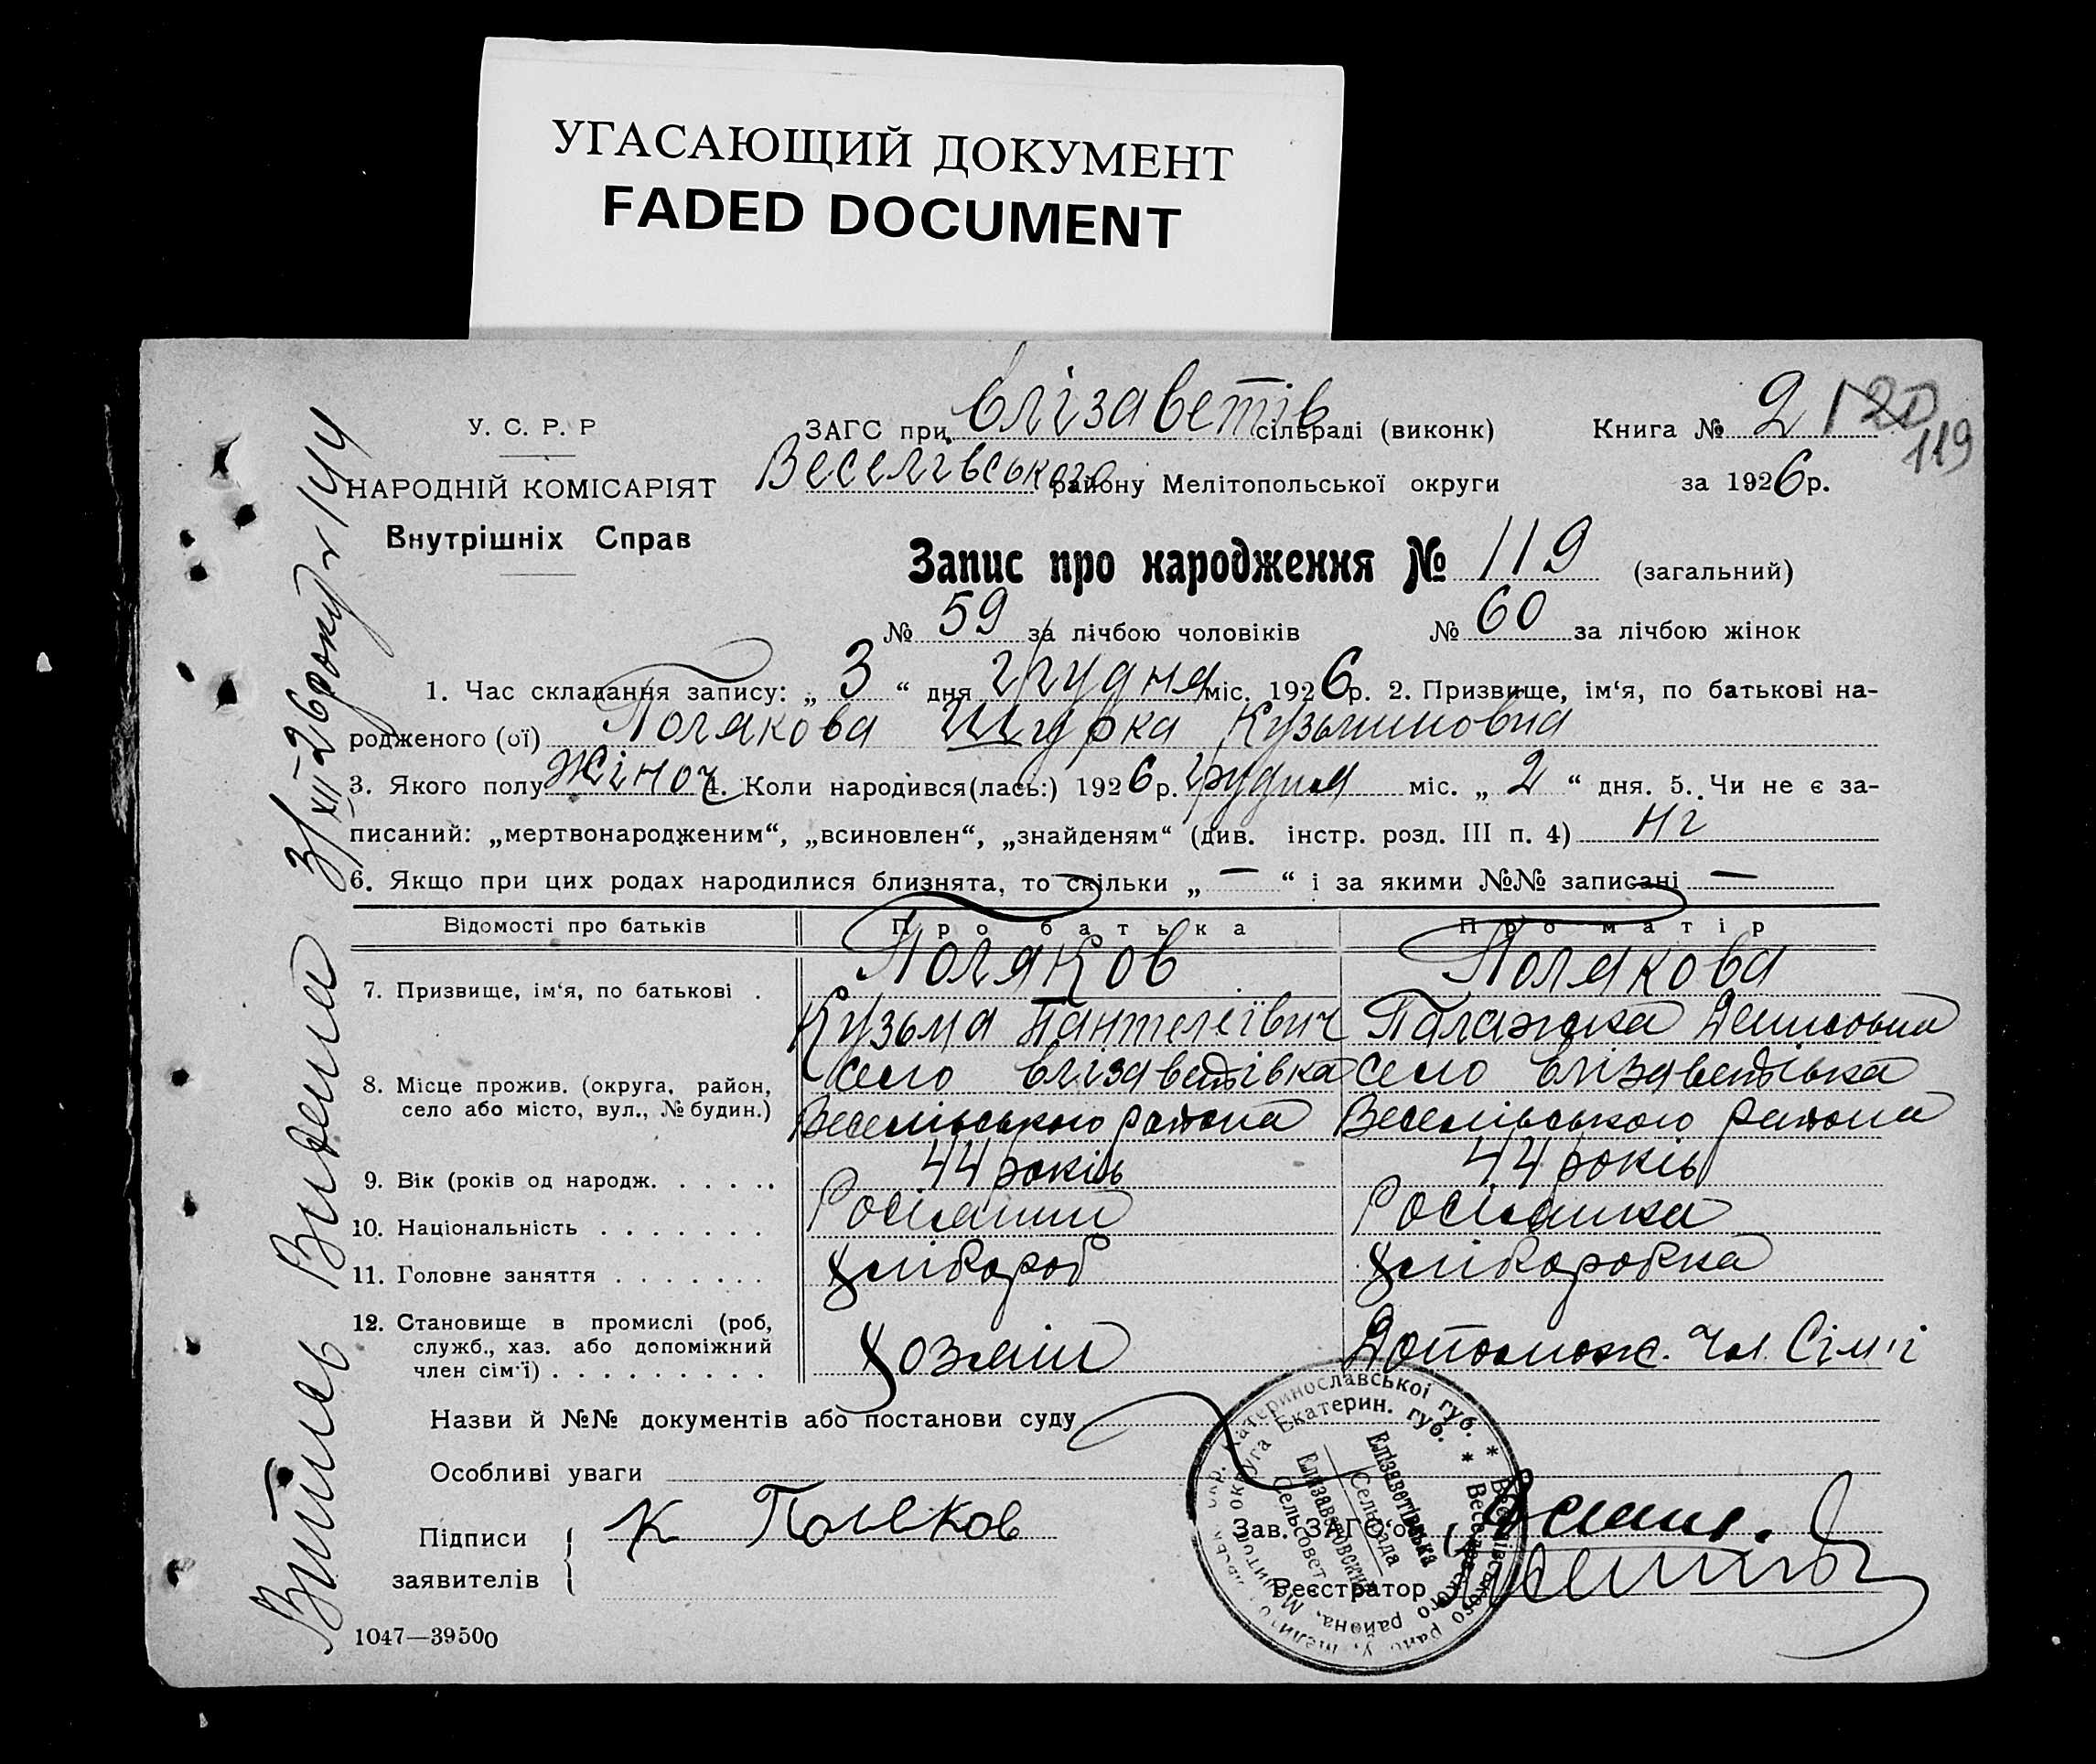 УГАСАЮЩИЙ ДОКУМЕНТ
FADED DOCUMENT
У. С. Р. Р
НАРОДНІЙ КОМІСАРІЯТ
Внутрішніх Справ
ЗАГС при Єлізаветів сільраді (виконк)
Веселівського району Мелітопольської округи
Книга № 2 120
119
за 1926 р.
Запис про народження № 119 (загальний)
№ 59 за лічбою чоловіків № 60 за лічбою жінок
1. Час складання запису: „ 3 “ дня грудня міс. 1926 р. 2. Призвище, ім‘я, по батькові на-
родженого (ої) Полякова Шурка Кузьминовна
3. Якого полу жіноч 4. Коли народився(лась:) 1926 р. грудня міс. „ 2 “ дня. 5. Чи не є за-
писаний: „мертвонародженим“, „всиновлен“, „знайденям“ (див. інстр. розд. III п. 4) ні
6. Якщо при цих родах народилися близнята, то скільки „ — “ і за якими №№ записані —
Відомості про батьків Про батька Про матір
7. Призвище, ім‘я, по батькові .
Поляков
Кузьма Пантелеївич
Полякова
Палажка Денисовна
8. Місце прожив. (округа, район,
село або місто, вул., № будин.)
село Єлізаветівка
Веселівського района
село Єлізаветівка
Веселівського района
9. Вік (років од народж. . . . . . 44 років 44 років
10. Національність . . . . . . . Росіянин Росіянка
11. Головне заняття . . . . . . . Хлібороб Хліборобка
12. Становище в промислі (роб,
служб., хаз. або допоміжний
член сім‘ї) . . . . . . . . .
Хозяїн
Допомож. чл. Сім'ї
Назви й №№ документів або постанови суду
Особливі уваги
Підписи
заявителів
К Поляков
Зав. ЗАГС‘ом
Реєстратор
Єлізаветівська
Сельрада
Елизаветовский
Сельсовет
1047—39500
Витяг Видана 3/XII-26 року № 144